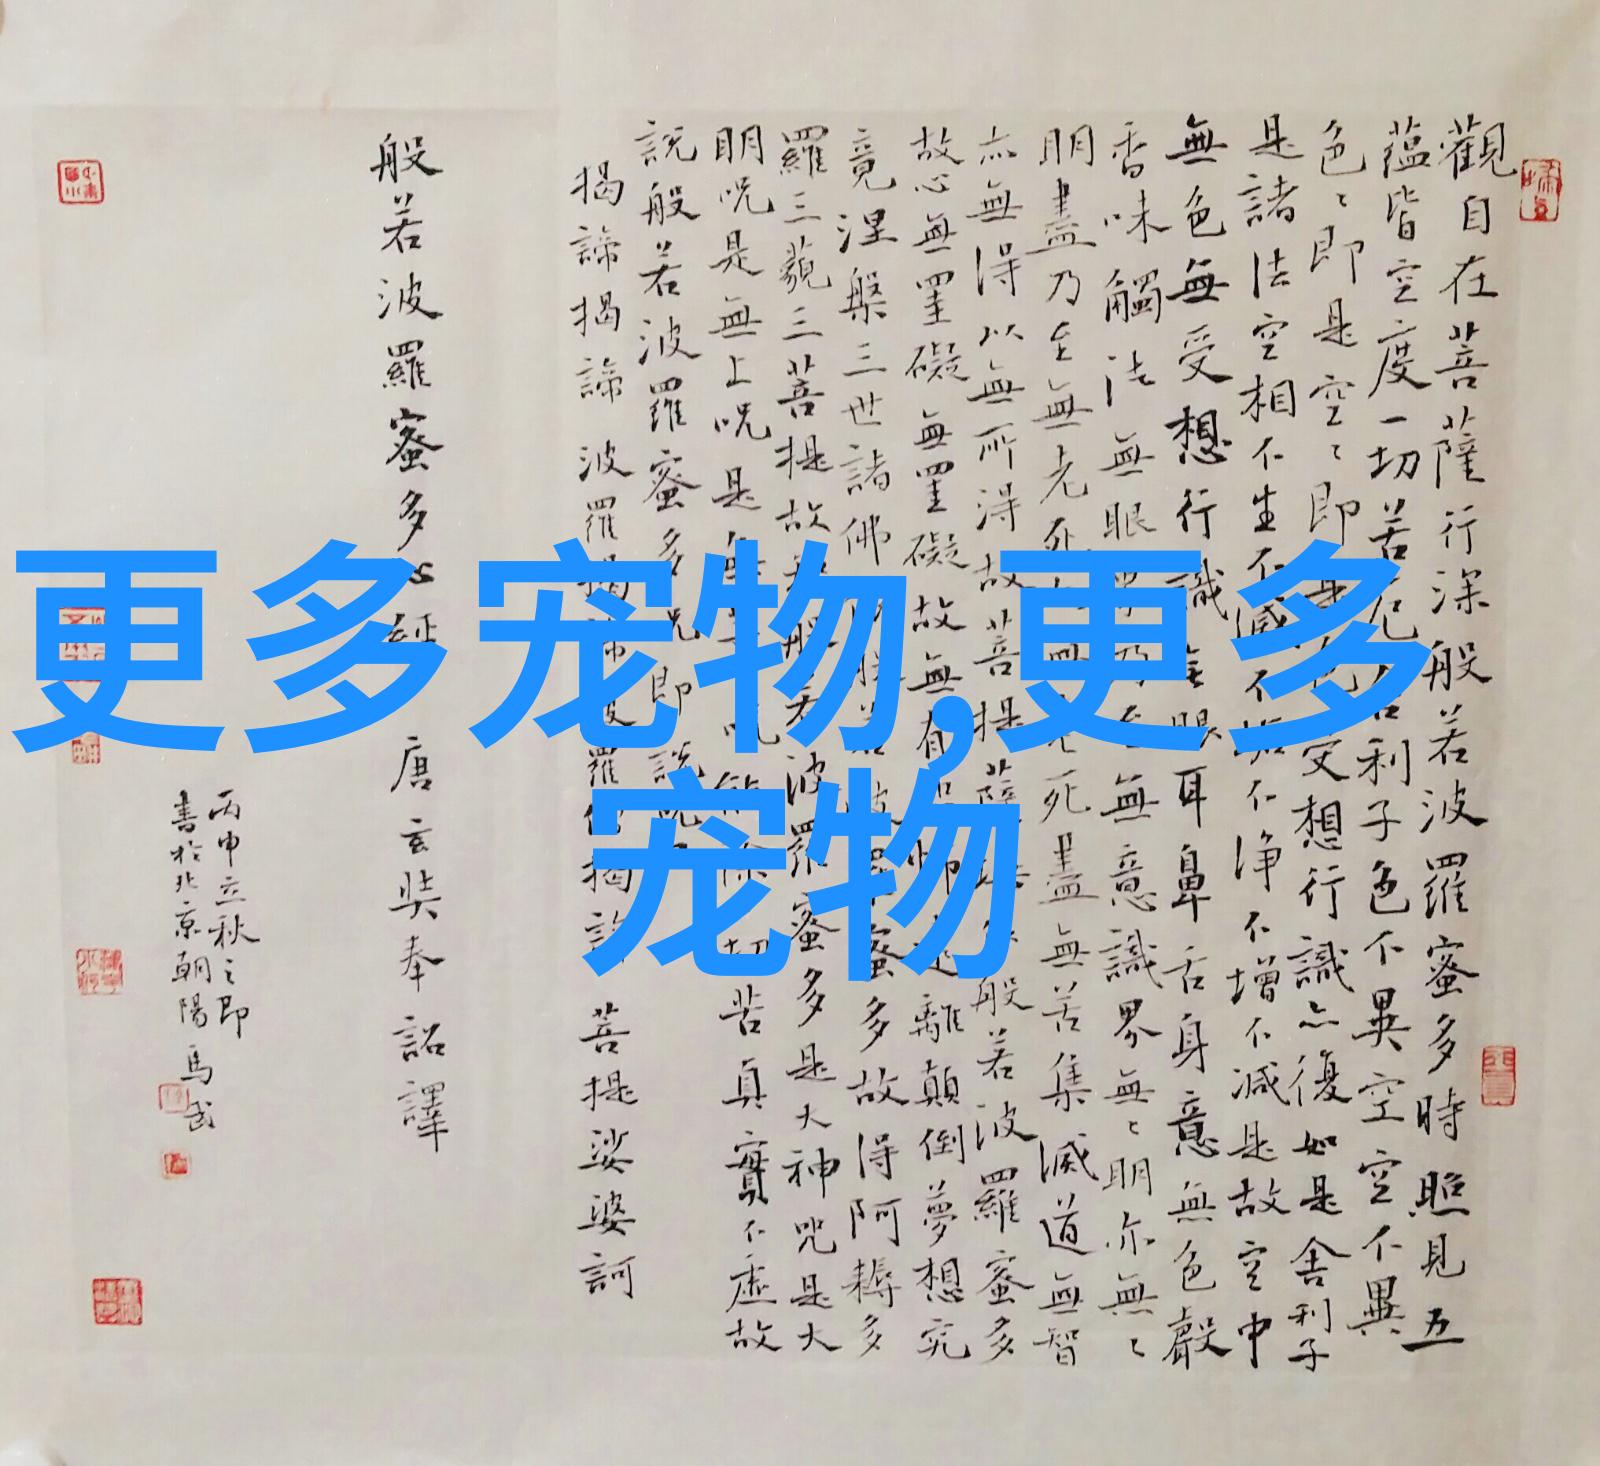 更多宠物,更多
宠物
觀自在菩薩行深般若波羅蜜多時照見五
蘊皆空度一切苦厄舍利子色不異空空不異
色〻即是空〻即是色受想行識亦復如是舍利子
是諸法空相不生不滅不垢不淨不增不減是故空中
無色無受想行識無眼耳鼻舌身意無色聲
香味觸法無眼界乃至無意識界無〻明亦無〻
明盡乃至無老死亦無老死盡無苦集滅道無智
亦無得以無所得故菩提薩埵依般若波羅蜜多
故心無罣礙無罣礙故無有恐怖遠離顛倒夢想究
竟涅槃三世諸佛依般若波羅蜜多故得阿耨多
羅三藐三菩提故知般若波羅蜜多是大神咒是大
明咒是無上咒是無等咒能除一切苦真實不虛故
說般若波羅蜜多咒即說咒
揭諦揭諦 波羅揭諦波羅僧揭諦 菩提娑婆訶
般若波羅蜜多心經 唐玄奘奉詔譯
丙申立秋之即
書於北京朝陽 馬